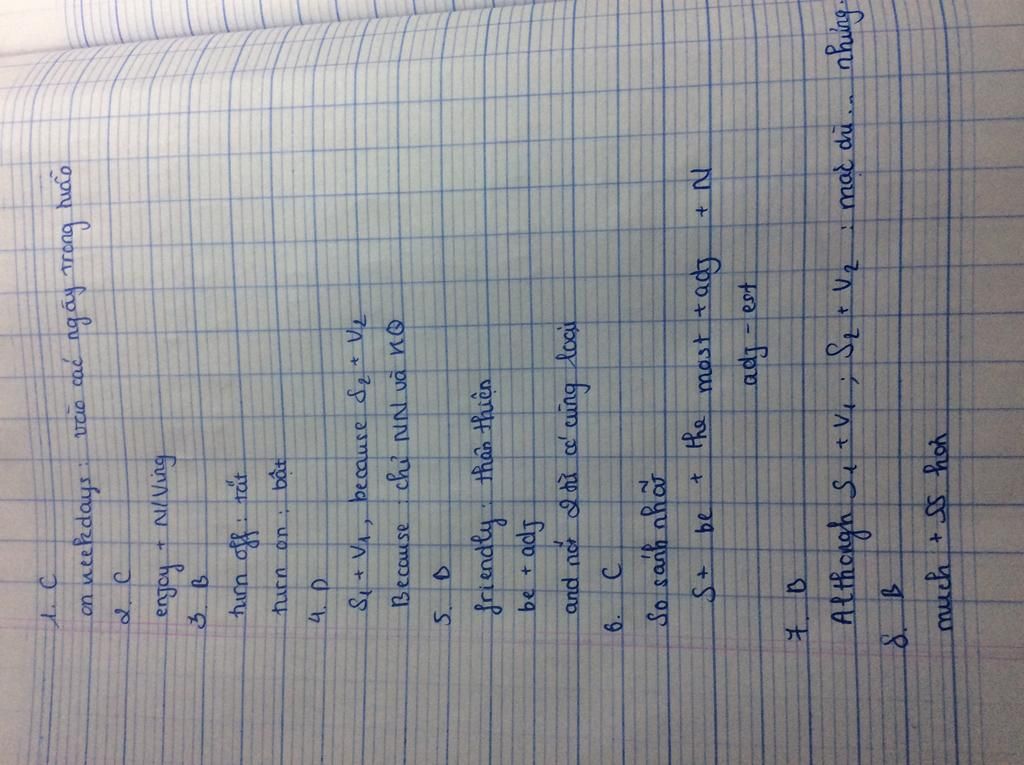 1. C
on weekdays : vào các ngày trong tuần
2. C
enjoy + N/Ving
3. B
turn off : tắt
turn on : bật
4. D
S1 + V1, because S2 + V2
Because : chỉ NN và KQ
5. D
friendly : thân thiện
be + adj
and nối 2 từ có cùng loại
6. C
So sánh nhất
S + be + the most + adj + N
adj - est
7. D
Although S1 + V1, S2 + V2 : mặc dù... nhưng.
8. B
much + SS hơn